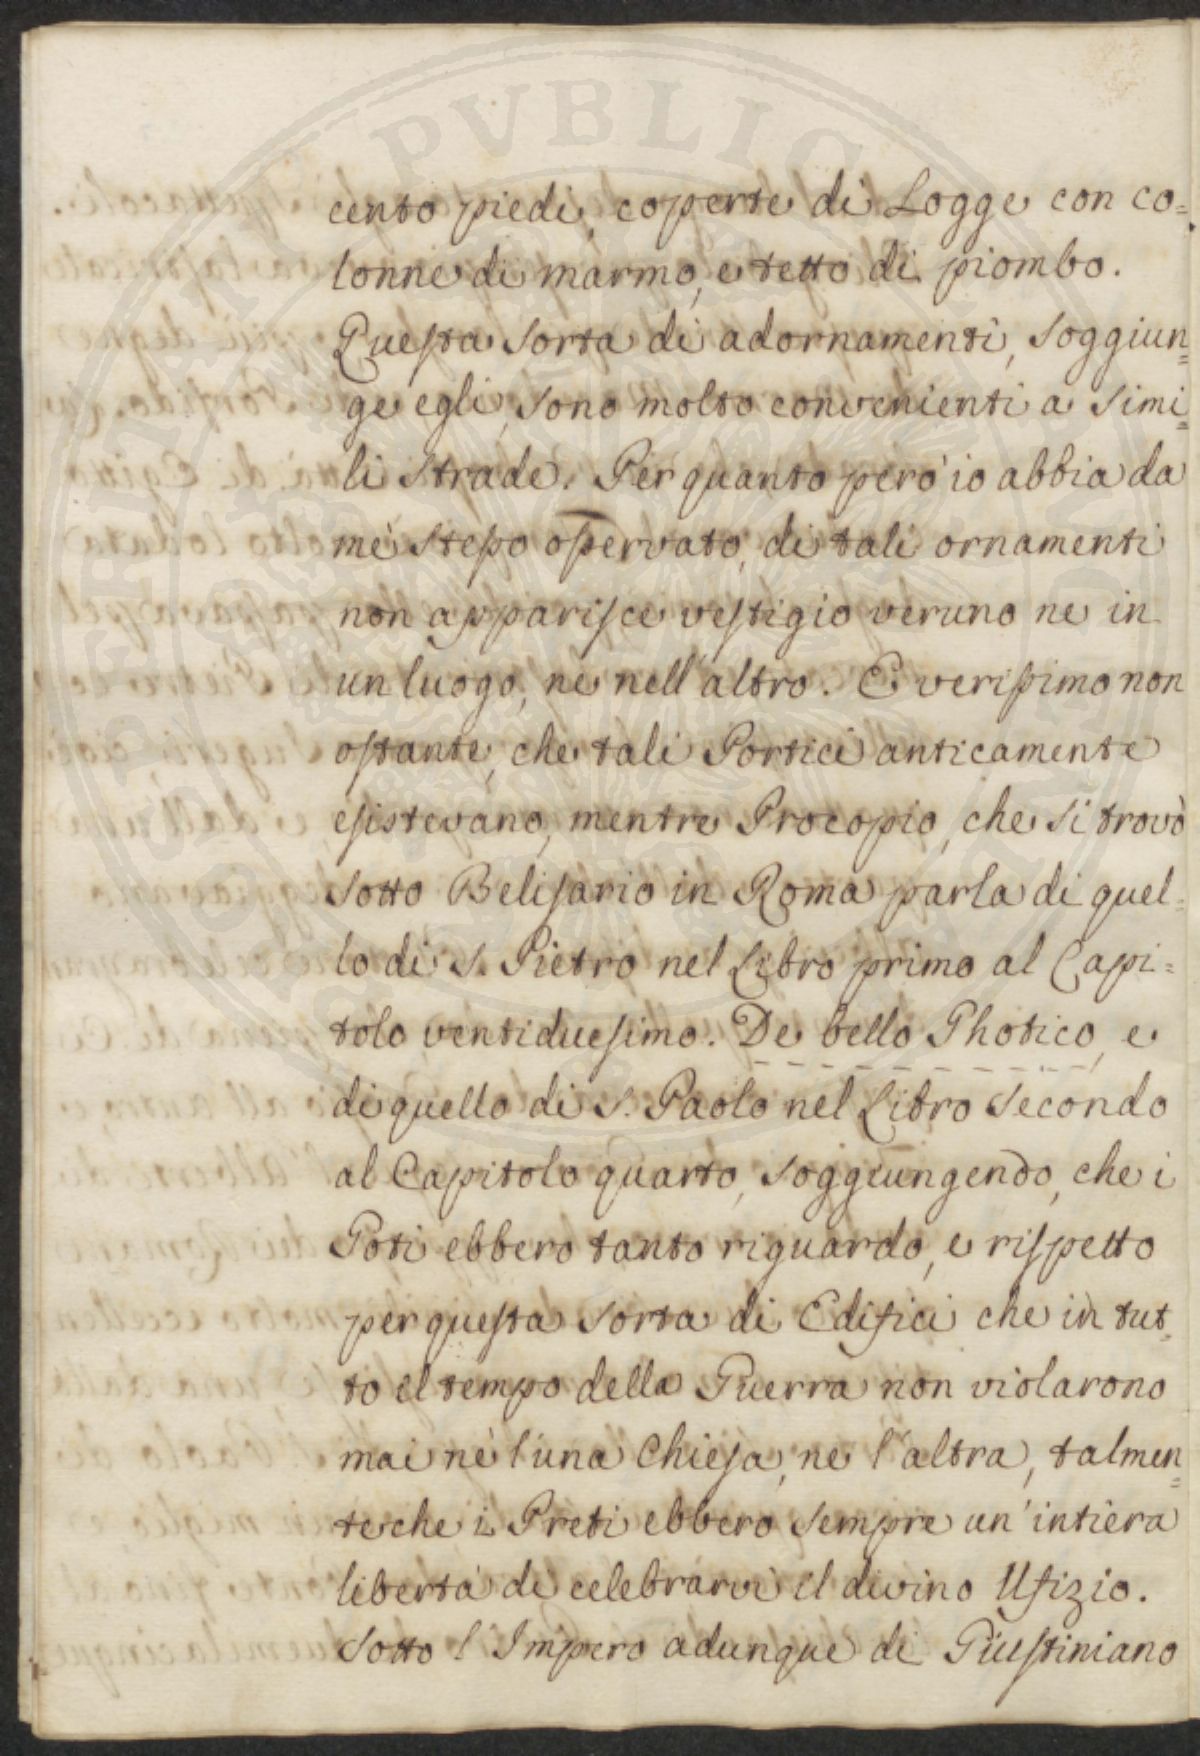 PVBLICI
cento piedi, coperte di Logge con co=
lonne di marmo, e tetto di piombo.
Questa sorta di adornamenti, soggiun=
ge egli, sono molto convenienti a simi=
li strade. Per quanto però io abbia da
mè stesso osservato, di tali ornamenti
non apparisce vestigio veruno ne in
un luogo, ne nell'altro. È verissimo non
ostante, che tali Portici anticamente
esistevano, mentre Procopio, che si trovò
sotto Belisario in Roma parla di quel=
lo di S. Pietro nel Libro primo al Capi=
tolo ventiduesimo. De bello Ghotico, e
di quello di S. Paolo nel Libro secondo
al Capitolo quarto, soggiungendo, che i
Goti ebbero tanto riguardo, e rispetto
per questa sorta di Edifici che in tut=
to el tempo della Guerra non violarono
mai nè l'una Chiesa, ne l'altra, talmen=
te che i Preti ebbero sempre un'intiera
libertà di celebrarvi il divino Ufizio.
Sotto l'Impero adunque di Giustiniano